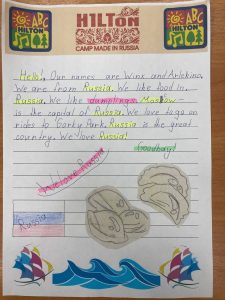 ABC
HILTON
HILTON
CAMP MADE IN RUSSIA
ABC
HILTON
Hello! Our names are Winx and Arlekino.
We are from Russia. We like food in
Russia. We like dumplings. Moskow –
is the capital of Russia. We love to go on
rides to Gorky Park. Russia is the great
country. We love Russia!
Goodbay!
Russia